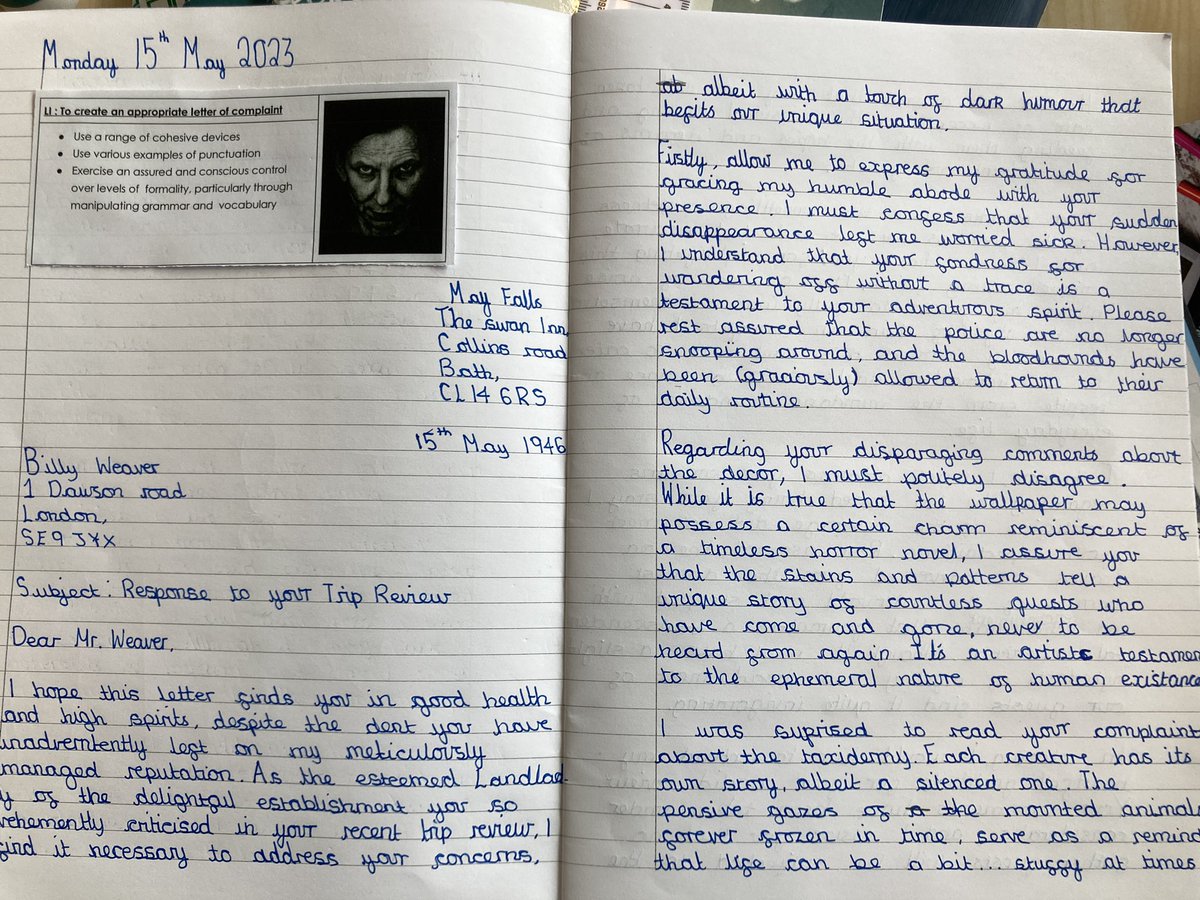 Monday 15th May 2023
LI : To create an appropriate letter of complaint
• Use a range of cohesive devices
• Use various examples of punctuation
• Exercise an assured and conscious control
over levels of formality, particularly through
manipulating grammar and vocabulary
May Falls
The swan Inn,
Collins road
Bath,
CL14 6RS
15th May 1946
Billy Weaver
1 Dawson road
London,
SE9 JYX
Subject: Response to your Trip Review
Dear Mr. Weaver,
I hope this letter finds you in good health
and high spirits, despite the dent you have
inadvertently left on my meticulously
managed reputation. As the esteemed Landlad-
y of the delightful establishment you so
vehemently criticised in your recent trip review, I
find it necessary to address your concerns,
albeit with a touch of dark humour that
befits our unique situation.
Firstly, allow me to express my gratitude for
gracing my humble abode with your
presence. I must confess that your sudden
disappearance left me worried sick. However,
I understand that your fondness for
wandering off without a trace is a
testament to your adventurous spirit. Please
rest assured that the police are no longer
snooping around, and the bloodhounds have
been (graciously) allowed to return to their
daily routine.
Regarding your disparaging comments about
the decor, I must politely disagree.
While it is true that the wallpaper may
possess a certain charm reminiscent of
a timeless horror novel, I assure you
that the stains and patterns tell a
unique story of countless guests who
have come and gone, never to be
heard from again. It's an artistc testamen
to the ephemeral nature of human existance
I was suprised to read your complaint
about the taxidermy. Each creature has its
own story, albeit a silenced one. The
pensive gazes of the mounted animals
forever frozen in time, serve as a remind
that life can be a bit... stuffy at times